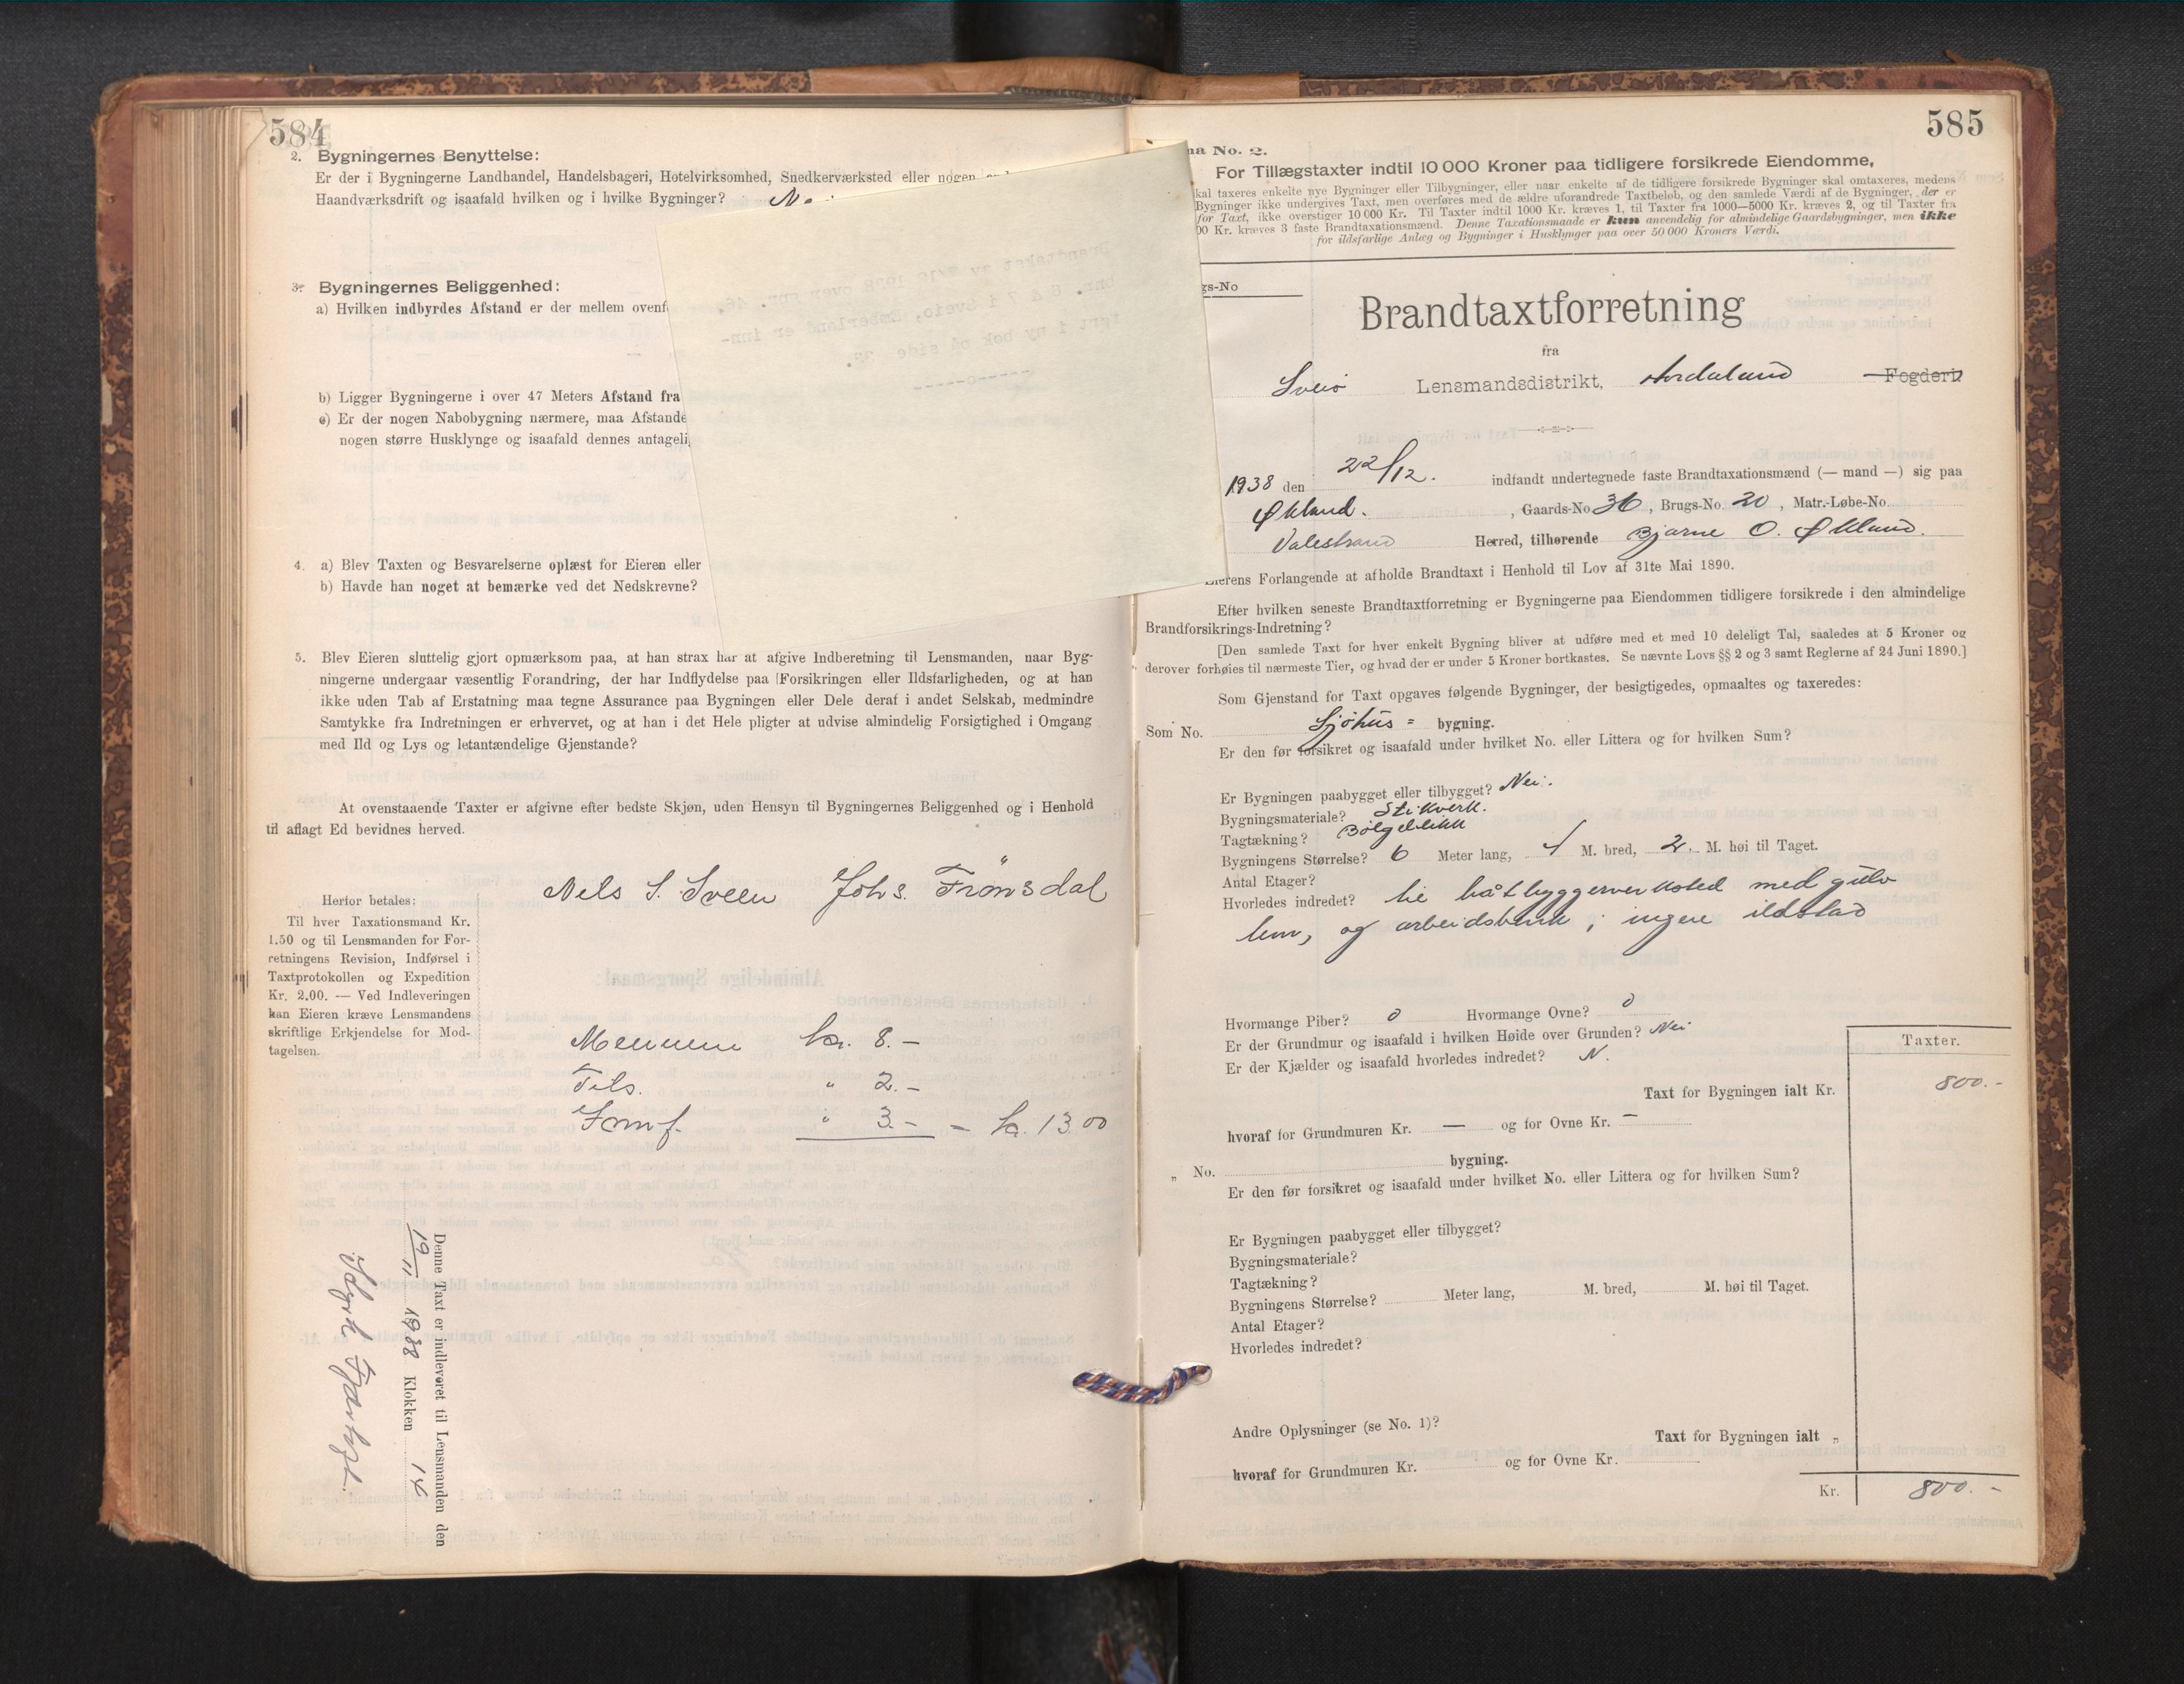 584
2. Bygningernes Benyttelse:
Er der i Bygningerne Landhandel, Handelsbageri, Hotelvirksomhed, Snedkerværksted eller nogen
Haandværksdrift og isaafald hvilken og i hvilke Bygninger?
3. Bygningernes Beliggenhed:
a) Hvilken indbyrdes Afstand er der mellem ovenf
b) Ligger Bygningerne i over 47 Meters Afstand fra
c) Er der nogen Nabobygning nærmere, maa Afstande
nogen større Husklynge og isaafald dennes antageli
4. a) Blev Taxten og Besvarelserne oplæst for Eieren eller
b) Havde han noget at bemærke ved det Nedskrevne?
5. Blev Eieren sluttelig gjort opmærksom paa, at han strax har at afgive Indberetning til Lensmanden, naar Byg-
ningerne undergaar væsentlig Forandring, der har Indflydelse paa Forsikringen eller Ildsfarligheden, og at han
ikke uden Tab af Erstatning maa tegne Assurance paa Bygningen eller Dele deraf i andet Selskab, medmindre
Samtykke fra Indretningen er erhvervet, og at han i det Hele pligter at udvise almindelig Forsigtighed i Omgang
med Ild og Lys og letantændelige Gjenstande?
At ovenstaaende Taxter er afgivne efter bedste Skjøn, uden Hensyn til Bygningernes Beliggenhed og i Henhold
til aflagt Ed bevidnes herved.
Nels S. Sveen Johs. Frönsdal
Herfor betales:
Til hver Taxationsmand Kr.
1.50 og til Lensmanden for For-
retningens Revision, Indførsel i
Taxtprotokollen og Expedition
Kr. 2.00. — Ved Indleveringen
kan Eieren kræve Lensmandens
skriftlige Erkjendelse for Mod-
tagelsen.
Mennene kr. 8.-
Tils. " 2.-
Innf. " 3.- - kr. 13.00
Denne Taxt er indleveret til Lensmanden den
19/11 1938 Klokken 14
585
ma No. 2.
For Tillægstaxter indtil 10 000 Kroner paa tidligere forsikrede Eiendomme,
kal taxeres enkelte nye Bygninger eller Tilbygninger, eller naar enkelte af de tidligere forsikrede Bygninger skal omtaxeres, medens
Bygninger ikke undergives Taxt, men overføres med de ældre uforandrede Taxtbeløb, og den samlede Værdi af de Bygninger, der er
for Taxt, ikke overstiger 10 000 Kr. Til Taxter indtil 1000 Kr. kræves 1, til Taxter fra 1000—5000 Kr. kræves 2, og til Taxter fra
00 Kr. kræves 3 faste Brandtaxationsmænd. Denne Taxationsmaade er kun anvendelig for almindelige Gaardsbygninger, men ikke
for ildsfarlige Anlæg og Bygninger i Husklynger paa over 50 000 Kroners Værdi.
gs-No
Brandtaxtforretning
fra
Sveio Lensmandsdistrikt, Hordaland Fogderi
1938 den 22/12. indfandt undertegnede faste Brandtaxationsmænd (— mand —) sig paa
Økland. , Gaards-No. 36, Brugs-No. 20, Matr.-Løbe-No.
Valestrand Herred, tilhørende Bjarne O. Økland.
Eierens Forlangende at afholde Brandtaxt i Henhold til Lov af 31te Mai 1890.
Efter hvilken seneste Brandtaxtforretning er Bygningerne paa Eiendommen tidligere forsikrede i den almindelige
Brandforsikrings-Indretning?
[Den samlede Taxt for hver enkelt Bygning bliver at udføre med et med 10 deleligt Tal, saaledes at 5 Kroner og
derover forhøies til nærmeste Tier, og hvad der er under 5 Kroner bortkastes. Se nævnte Lovs §§ 2 og 3 samt Reglerne af 24 Juni 1890.]
Som Gjenstand for Taxt opgaves følgende Bygninger, der besigtigedes, opmaaltes og taxeredes:
Som No. Sjøhus= bygning.
Er den før forsikret og isaafald under hvilket No. eller Littera og for hvilken Sum?
Er Bygningen paabygget eller tilbygget? Nei.
Bygningsmateriale? Stikverk.
Tagtækning? Bølgeblikk
Bygningens Størrelse? 6 Meter lang, 4 M. bred, 2. M. høi til Taget.
Antal Etager?
Hvorledes indredet? til båtbyggerverksted med gulv
lem, og arbeidsbenk; ingen ildstad
Hvormange Piber? 0 Hvormange Ovne? 0
Er der Grundmur og isaafald i hvilken Høide over Grunden? Nei
Er der Kjælder og isaafald hvorledes indredet? N.
Taxter.
Taxt for Bygningen ialt Kr. 800.-
hvoraf for Grundmuren Kr. — og for Ovne Kr. —
„ No. bygning.
Er den før forsikret og isaafald under hvilket No. eller Littera og for hvilken Sum?
Er Bygningen paabygget eller tilbygget?
Bygningsmateriale?
Tagtækning?
Bygningens Størrelse? Meter lang, M. bred, M. høi til Taget.
Antal Etager?
Hvorledes indredet?
Andre Oplysninger (se No. 1)?
Taxt for Bygningen ialt „
hvoraf for Grundmuren Kr. og for Ovne Kr.
Kr. 800.-